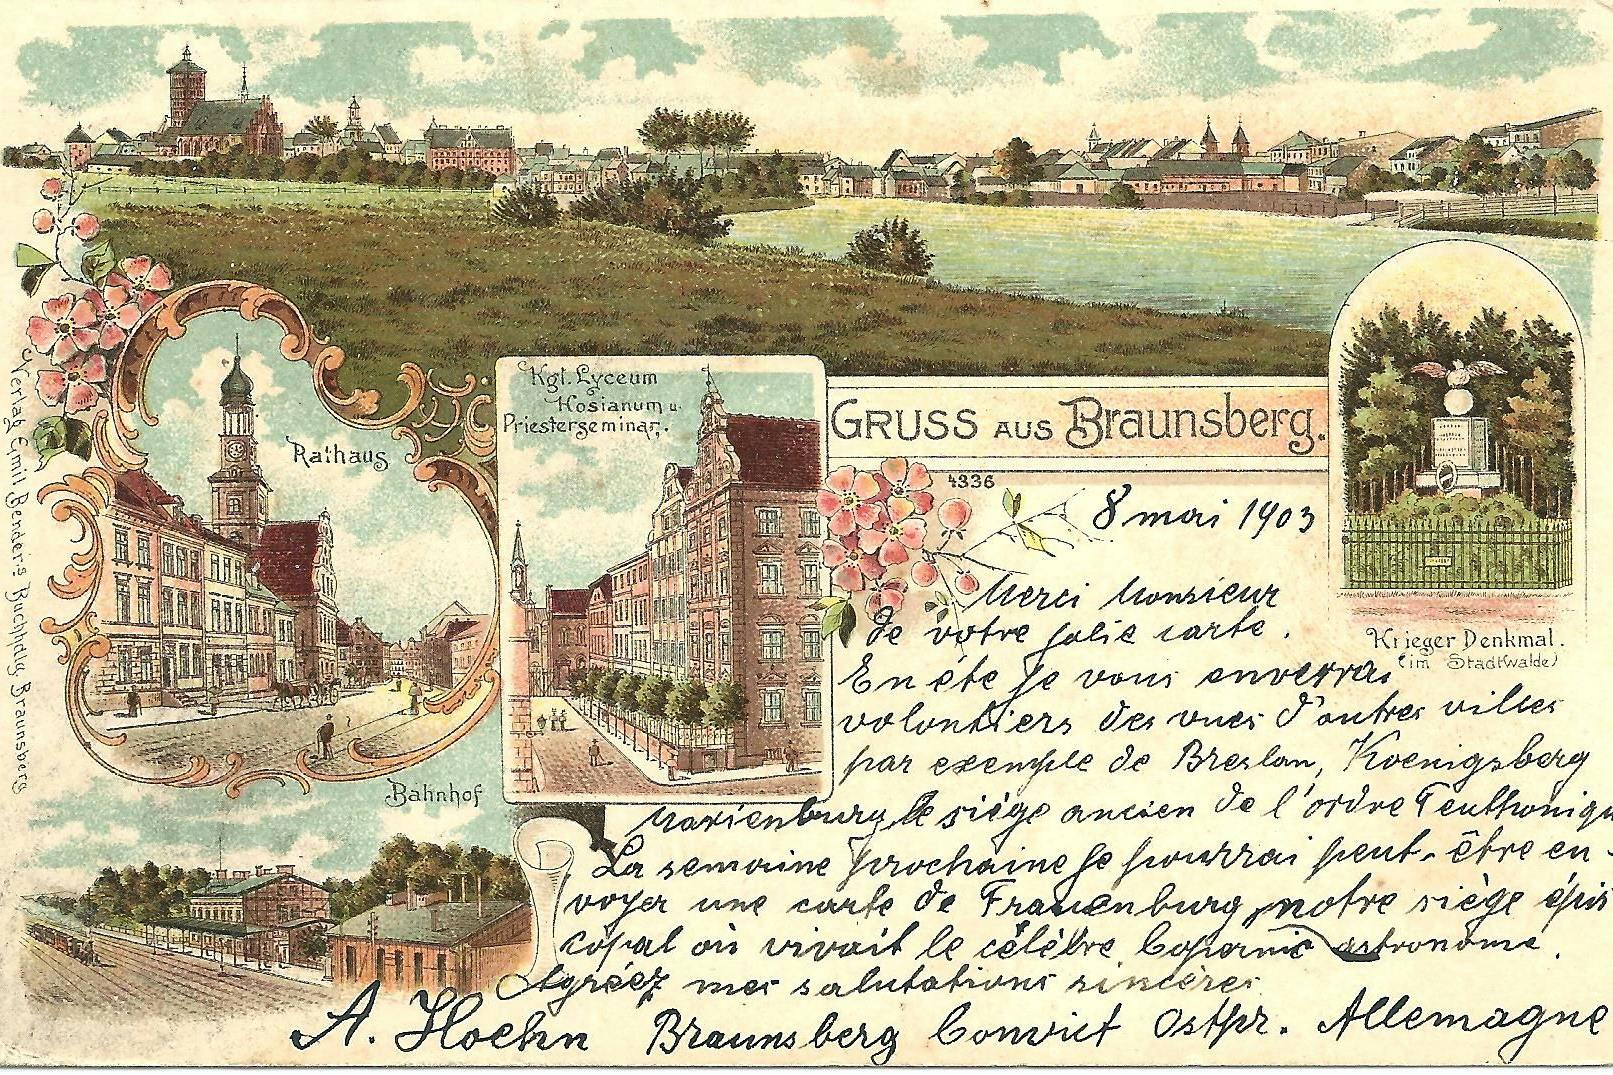 Kgl. Lyceum
Hosianum u.
Priesterseminar.
Rathaus
GRUSS AUS Braunsberg.
4336
8 mai 1903
Merci Monsieur
de votre jolie carte.
En éte je vous enverrai
volontiers des vues d'autres villes
par exemple de Breslau, Koenigsberg
Marienburg le siège ancien de l'ordre Teuthoniqu
La semaine prochaine je pourrai peut-être en-
voyer une carte de Frauenburg, notre siège épis
copal où vivait le célèbre Copernic astronome.
Agréez mes salutations sincères
A. Hoehn Braunsberg Convict Ostpr. Allemagne
Krieger Denkmal.
(im Stadtwalde)
Bahnhof
Verlag Emil Bender's Buchhdlg, Braunsberg